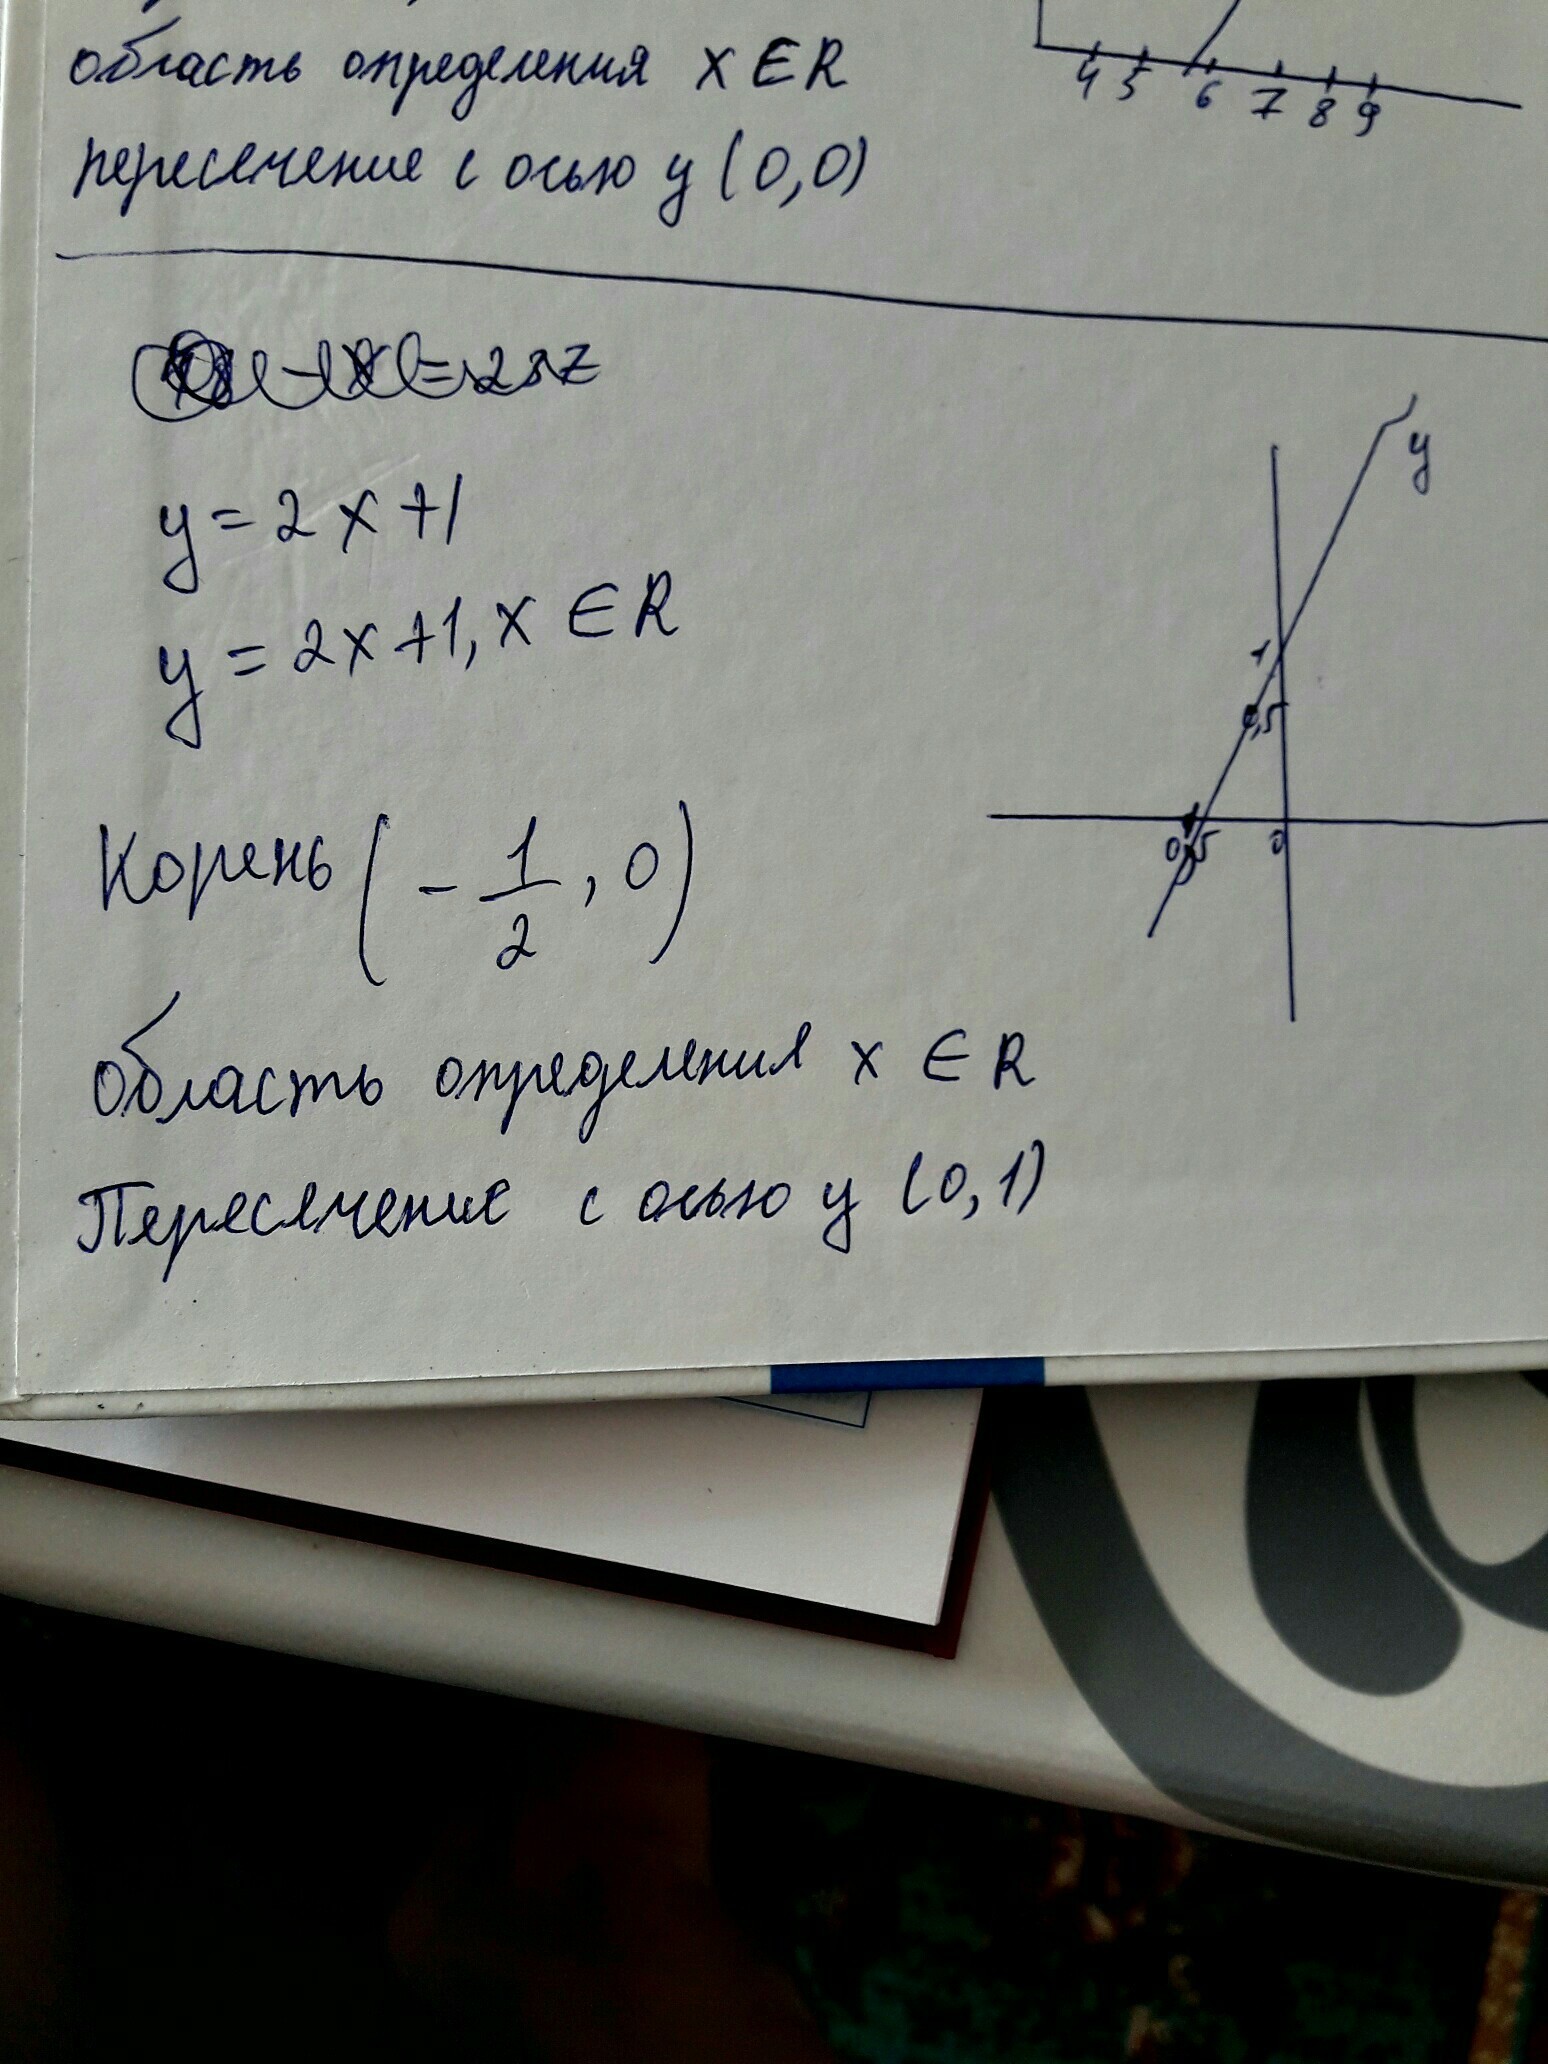 область определения x ∈ R
4 5 6 7 8 9
пересечение с осью y (0,0)
y = 2x+1
y
y = 2x+1, x ∈ R
1
0,5
Корень (-1/2, 0)
0,5 0
Область определения x ∈ R
Пересечение с осью y (0,1)